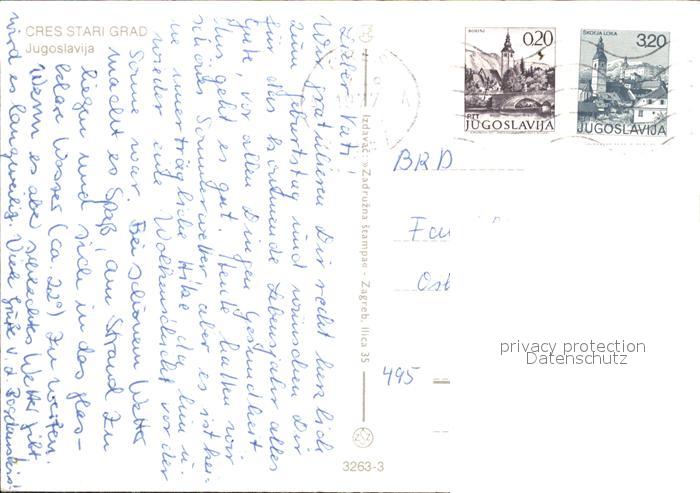 CRES STARI GRAD
Jugoslavija
Lieber Vati!
Wir gratulieren Dir recht herzlich
zum Geburtstag und wünschen Dir
für das kommende Lebensjahr alles
Gute, vor allen Dingen Gesundheit
Uns geht es gut. Heute hatten wir
schönes Sommerwetter, aber es ist kei-
ne unerträgliche Hitze, da hin u.
wieder eine Wolkenschicht vor der
Sonne war. Bei schönem Wetter
macht es Spaß, am Strand zu
liegen und sich in das glas-
klare Wasser (ca. 22°) zu werfen.
Wenn es aber schlechtes Wetter gibt,
wird es langweilig. Viele Grüße v. d.
Izdavač: »Zadružna štampa« - Zagreb, Ilica 35
3263-3
BOHINJ
0.20
PTT
JUGOSLAVIJA
ŠKOFJA LOKA
3.20
JUGOSLAVIJA
BRD
Ost
495
privacy protection
Datenschutz